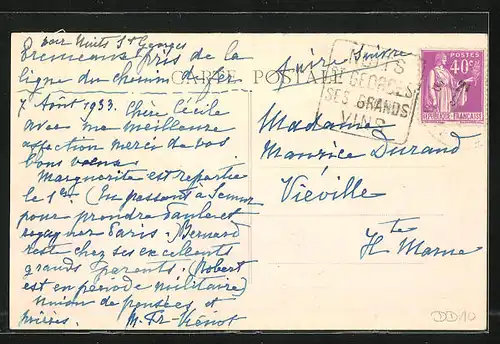 par Nuits St Georges
Premeaux près de la
ligne du chemin de fer
CARTE POSTALE
7 Août 1933. Chère Cécile
avec ma meilleure
affection merci de vos
bons vœux.
Marguerite est repartie
le 1er (En passant à Semur
pour prendre
Paris. Bernard
reste chez ses excellents
grands Parents. (Robert
est en période militaire)
union de pensées et
prières. M. Fr. Viénot
Faire Suivre
NUITS
ST GEORGES
SES GRANDS
VINS
POSTES
40c
REPUBLIQUE FRANÇAISE
Madame
Maurice Durand
Viéville
Hte Marne
DD10